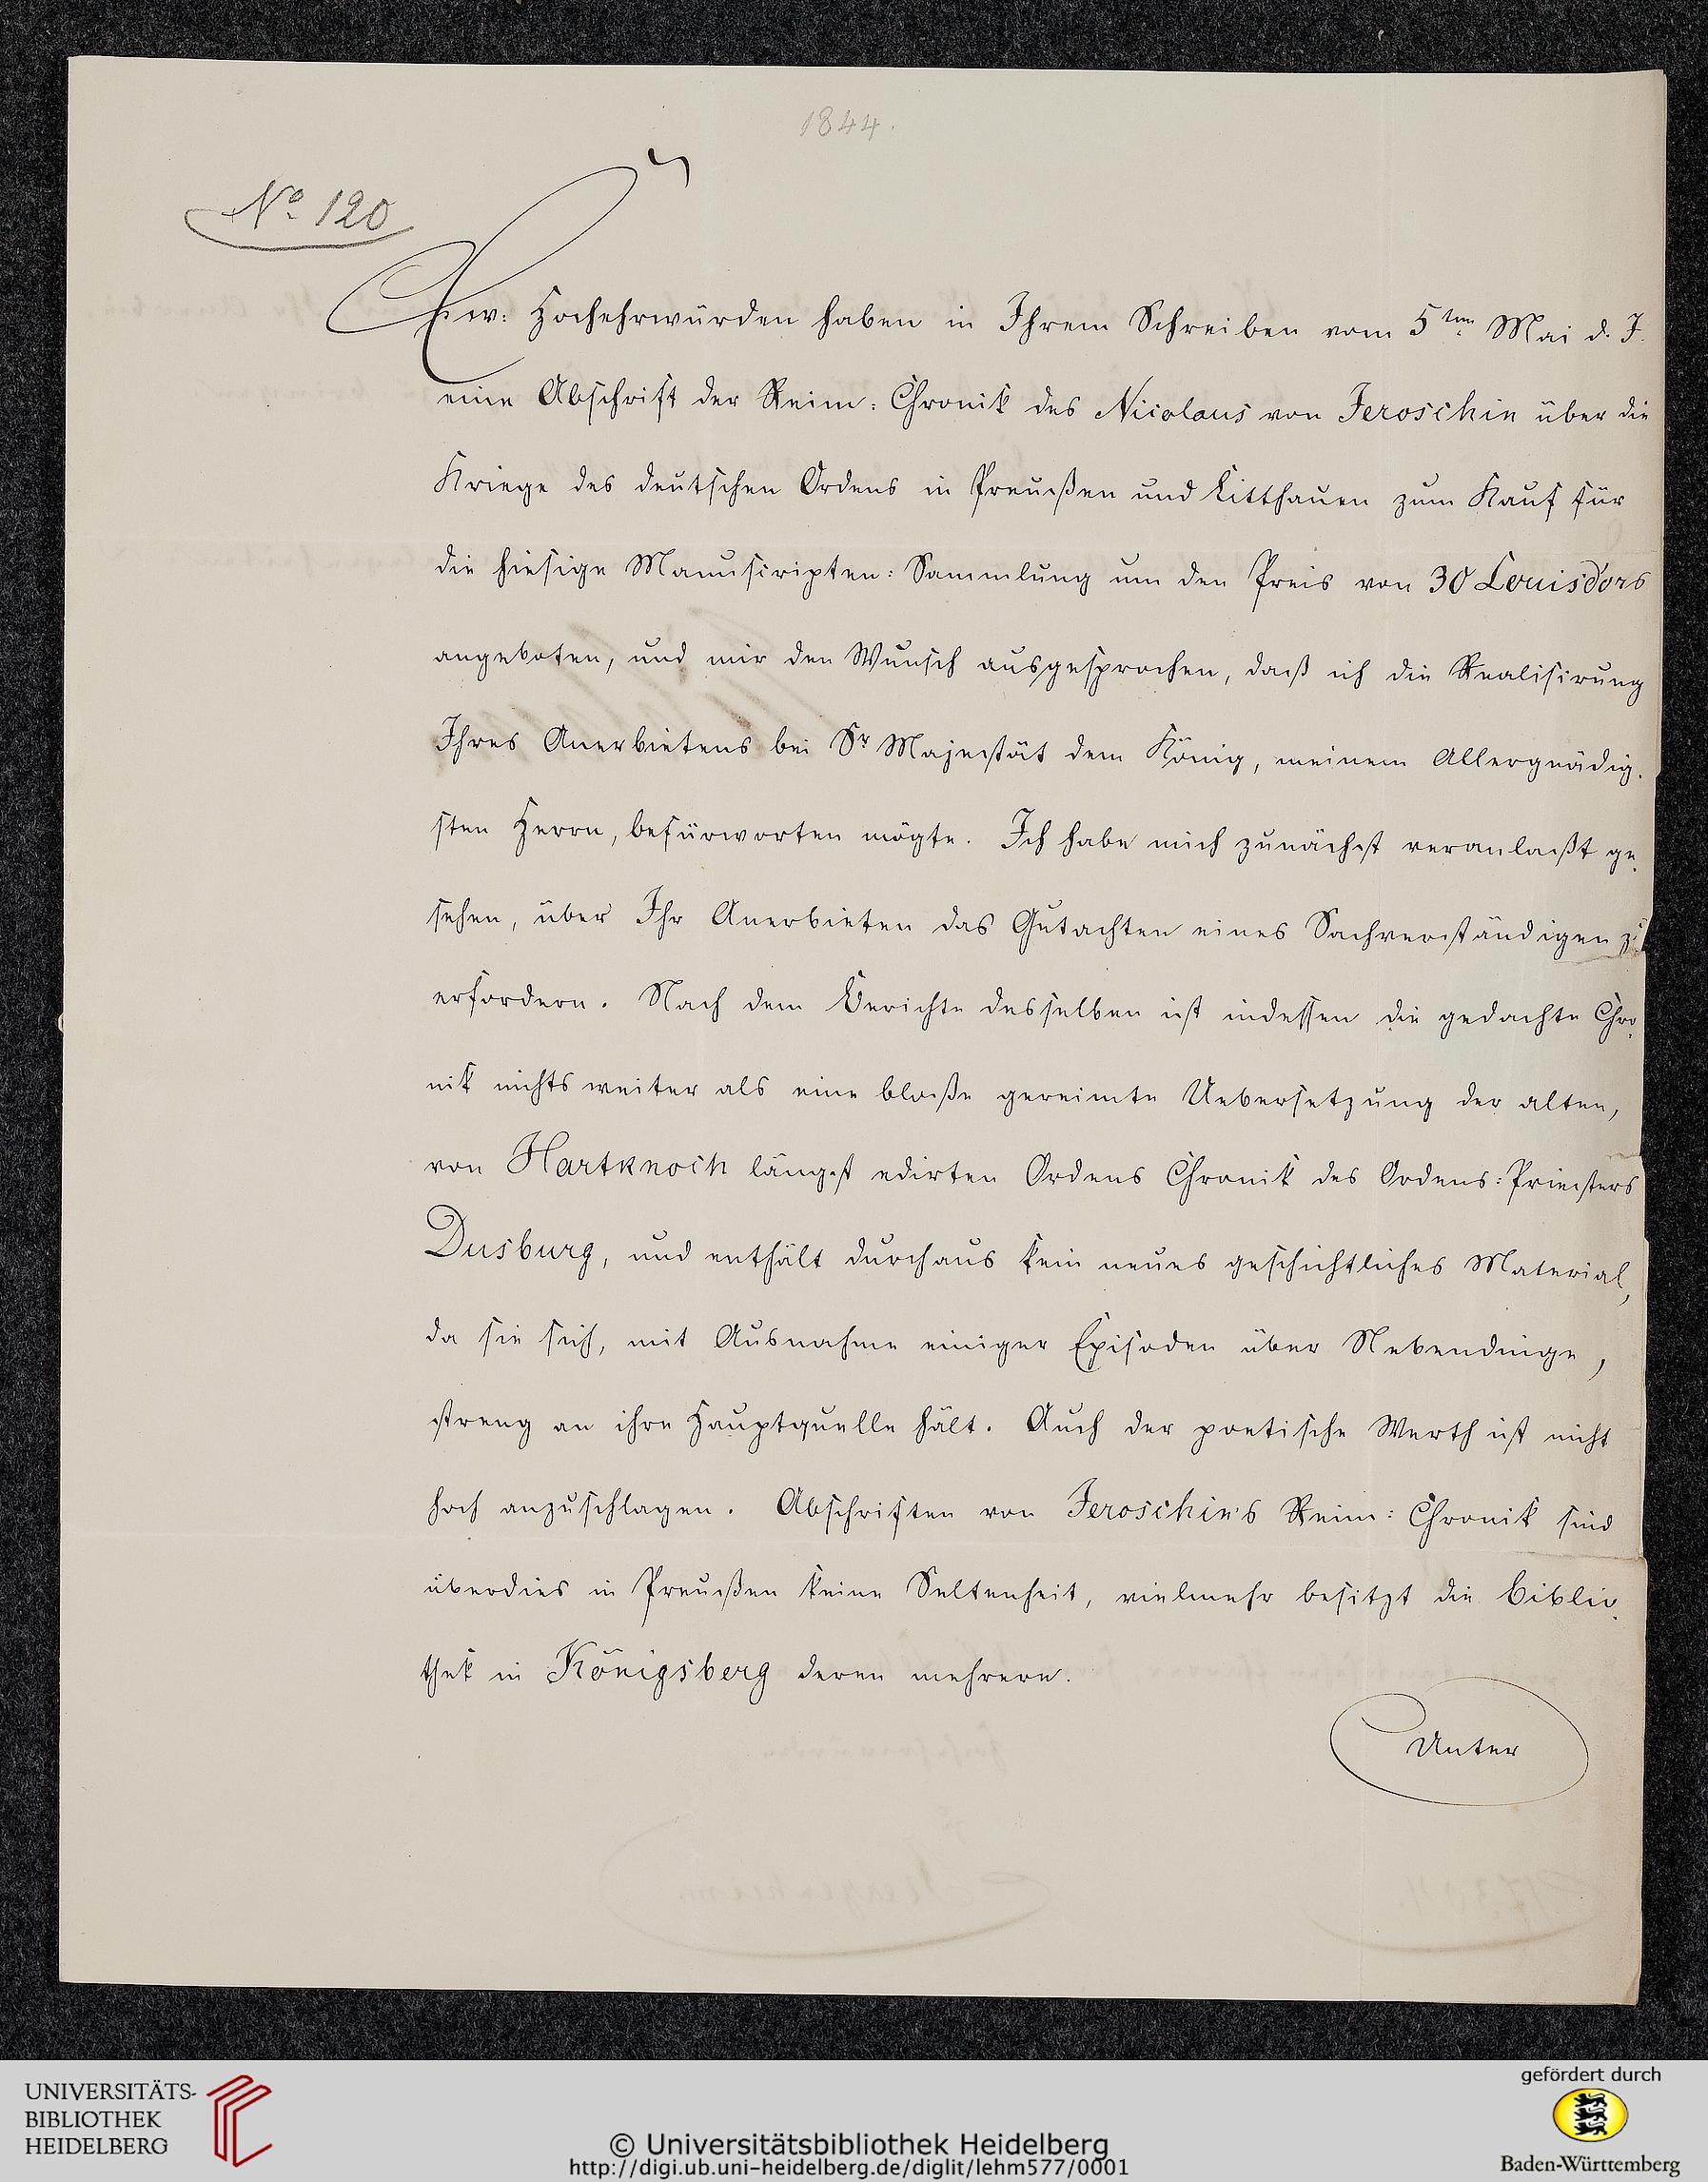 1844.
No. 120
Ew: Hochehrwürden haben in Ihrem Schreiben vom 5ten Mai d. J.
eine Abschrift der Reim: Chronik des Nicolaus von Jeroschin über die
Kriege des deutschen Ordens in Preußen und Litthauen zum Kauf für
die hiesige Manuscripten: Sammlung um den Preis von 30 Louisd'ors
angeboten, und mir den Wunsch ausgesprochen, daß ich die Realisirung
Ihres Anerbietens bei Sr Majestät dem König, meinem Allergnädig-
sten Herrn, befürworten mögte. Ich habe mich zunächst veranlaßt ge-
sehen, über Ihr Anerbieten das Gutachten eines Sachverständigen zu
erfordern. Nach dem Berichte desselben ist indessen die gedachte Chro-
nik nichts weiter als eine bloße gereimte Uebersetzung der alten,
von Hartknoch längst edirten Ordens Chronik des Ordens: Priesters
Dusburg, und enthält durchaus kein neues geschichtliches Material,
da sie sich, mit Ausnahme einiger Episoden über Nebendinge,
streng an ihre Hauptquelle hält. Auch der poetische Werth ist nicht
hoch anzuschlagen. Abschriften von Jeroschin's Reim: Chronik sind
überdies in Preußen keine Seltenheit, vielmehr besitzt die Biblio-
thek in Königsberg deren mehrere.
Unter
UNIVERSITÄTS-
BIBLIOTHEK
HEIDELBERG
© Universitätsbibliothek Heidelberg
http://digi.ub.uni-heidelberg.de/diglit/lehm577/0001
gefördert durch
Baden-Württemberg